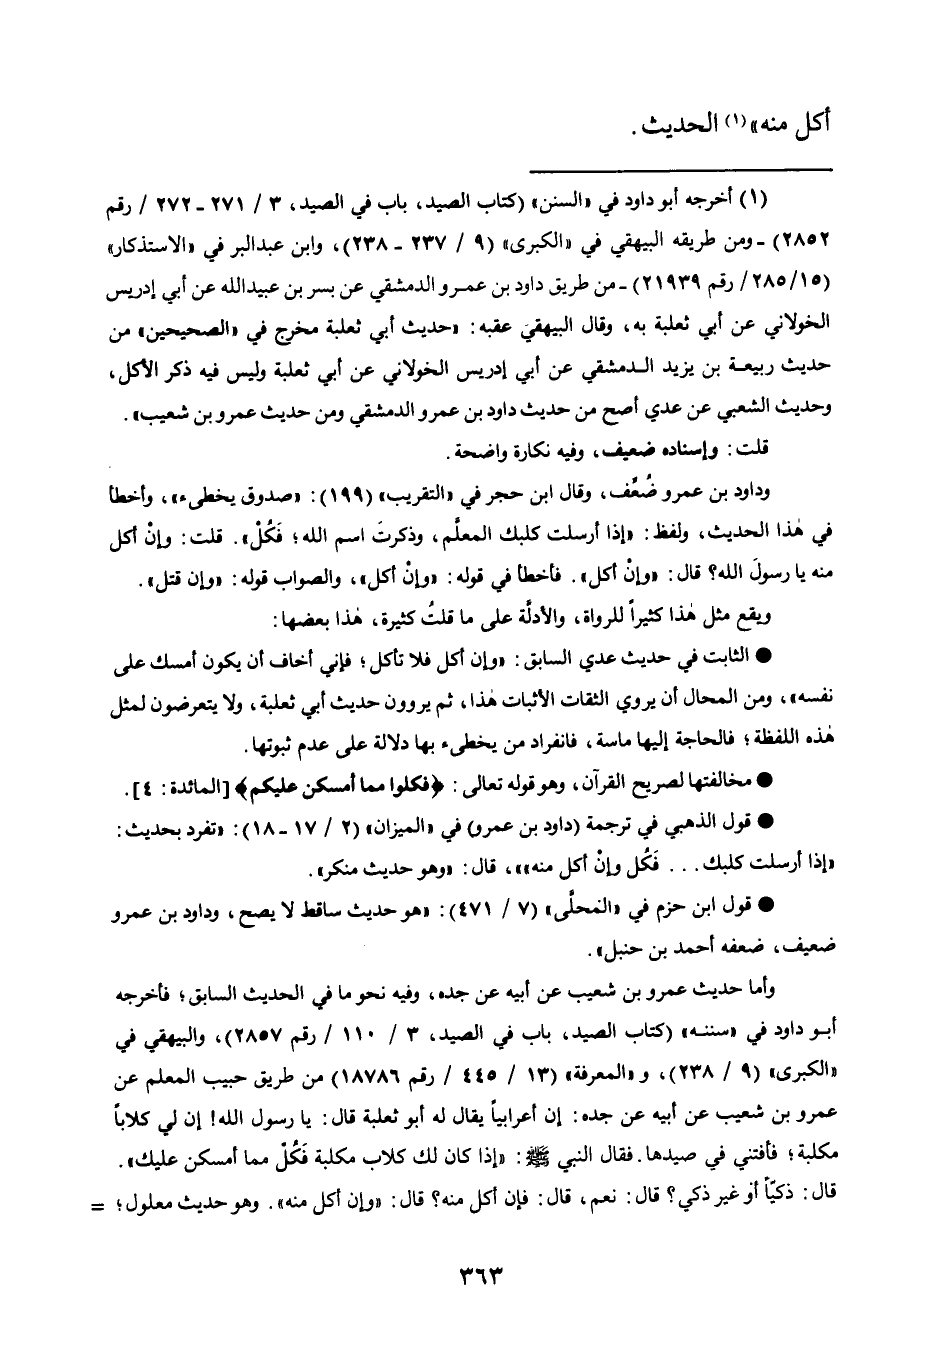 أكل منه»(١) الحديث.
(١) أخرجه أبو داود في «السنن» (كتاب الصيد، باب في الصيد، ٣ / ٢٧١ ـ ٢٧٢ / رقم
٢٨٥٢) ـ ومن طريقه البيهقي في «الكبرى» (٩ / ٢٣٧ ـ ٢٣٨)، وابن عبدالبر في «الاستذكار»
(١٥/ ٢٨٥/ رقم ٢١٩٣٩) ـ من طريق داود بن عمرو الدمشقي عن بسر بن عبيدالله عن أبي إدريس
الخولاني عن أبي ثعلبة به، وقال البيهقيَ عقبه: «حديث أبي ثعلبة مخرج في «الصحيحين» من
حديث ربيعة بن يزيد الدمشقي عن أبي إدريس الخولاني عن أبي ثعلبة وليس فيه ذكر الأكل،
وحديث الشعبي عن عدي أصح من حديث داود بن عمرو الدمشقي ومن حديث عمرو بن شعيب».
قلت: وإسناده ضعيف، وفيه نكارة واضحة.
وداود بن عمرو ضُعِّف، وقال ابن حجر في «التقريب» (١٩٩): «صدوق يخطىء»، وأخطأ
في هٰذا الحديث، ولفظ: «إذا أرسلت كلبك المعلَّم، وذكرتَ اسم الله؛ فَكُلْ». قلت: وإنْ أكل
منه يا رسولَ الله؟ قال: «وإنْ أكل». فأخطأ في قوله: «وإنْ أكل»، والصواب قوله: «وإن قتل».
ويقع مثل هٰذا كثيراً للرواة، والأدلَّة على ما قلتُ كثيرة، هٰذا بعضها:
● الثابت في حديث عدي السابق: «وإن أكل فلا تأكل؛ فإني أخاف أن يكون أمسك على
نفسه»، ومن المحال أن يروي الثقات الأثبات هٰذا، ثم يروون حديث أبي ثعلبة، ولا يتعرضون لمثل
هٰذه اللفظة؛ فالحاجة إليها ماسة، فانفراد من يخطىء بها دلالة على عدم ثبوتها.
● مخالفتها لصريح القرآن، وهو قوله تعالى: ﴿فكلوا مما أمسكن عليكم﴾ [المائدة: ٤].
● قول الذهبي في ترجمة (داود بن عمرو) في «الميزان» (٢ / ١٧ ـ ١٨): «تفرد بحديث:
«إذا أرسلت كلبك. . . فَكُل وإنْ أكل منه»»، قال: «وهو حديث منكر».
● قول ابن حزم في «المحلَّى» (٧ / ٤٧١): «هو حديث ساقط لا يصح، وداود بن عمرو
ضعيف، ضعفه أحمد بن حنبل».
وأما حديث عمرو بن شعيب عن أبيه عن جده، وفيه نحو ما في الحديث السابق؛ فأخرجه
أبو داود في «سننه» (كتاب الصيد، باب في الصيد، ٣ / ١١٠ / رقم ٢٨٥٧)، والبيهقي في
«الكبرى» (٩ / ٢٣٨)، و«المعرفة» (١٣ / ٤٤٥ / رقم ١٨٧٨٦) من طريق حبيب المعلم عن
عمرو بن شعيب عن أبيه عن جده: إن أعرابياً يقال له أبو ثعلبة قال: يا رسول الله! إن لي كلاباً
مكلبة؛ فأفتني في صيدها. فقال النبي ﷺ: «إذا كان لك كلاب مكلبة فَكُلْ مما أمسكن عليك».
قال: ذكيّاً أو غير ذكي؟ قال: نعم، قال: فإن أكل منه؟ قال: «وإن أكل منه». وهو حديث معلول؛ =
٣٦٣